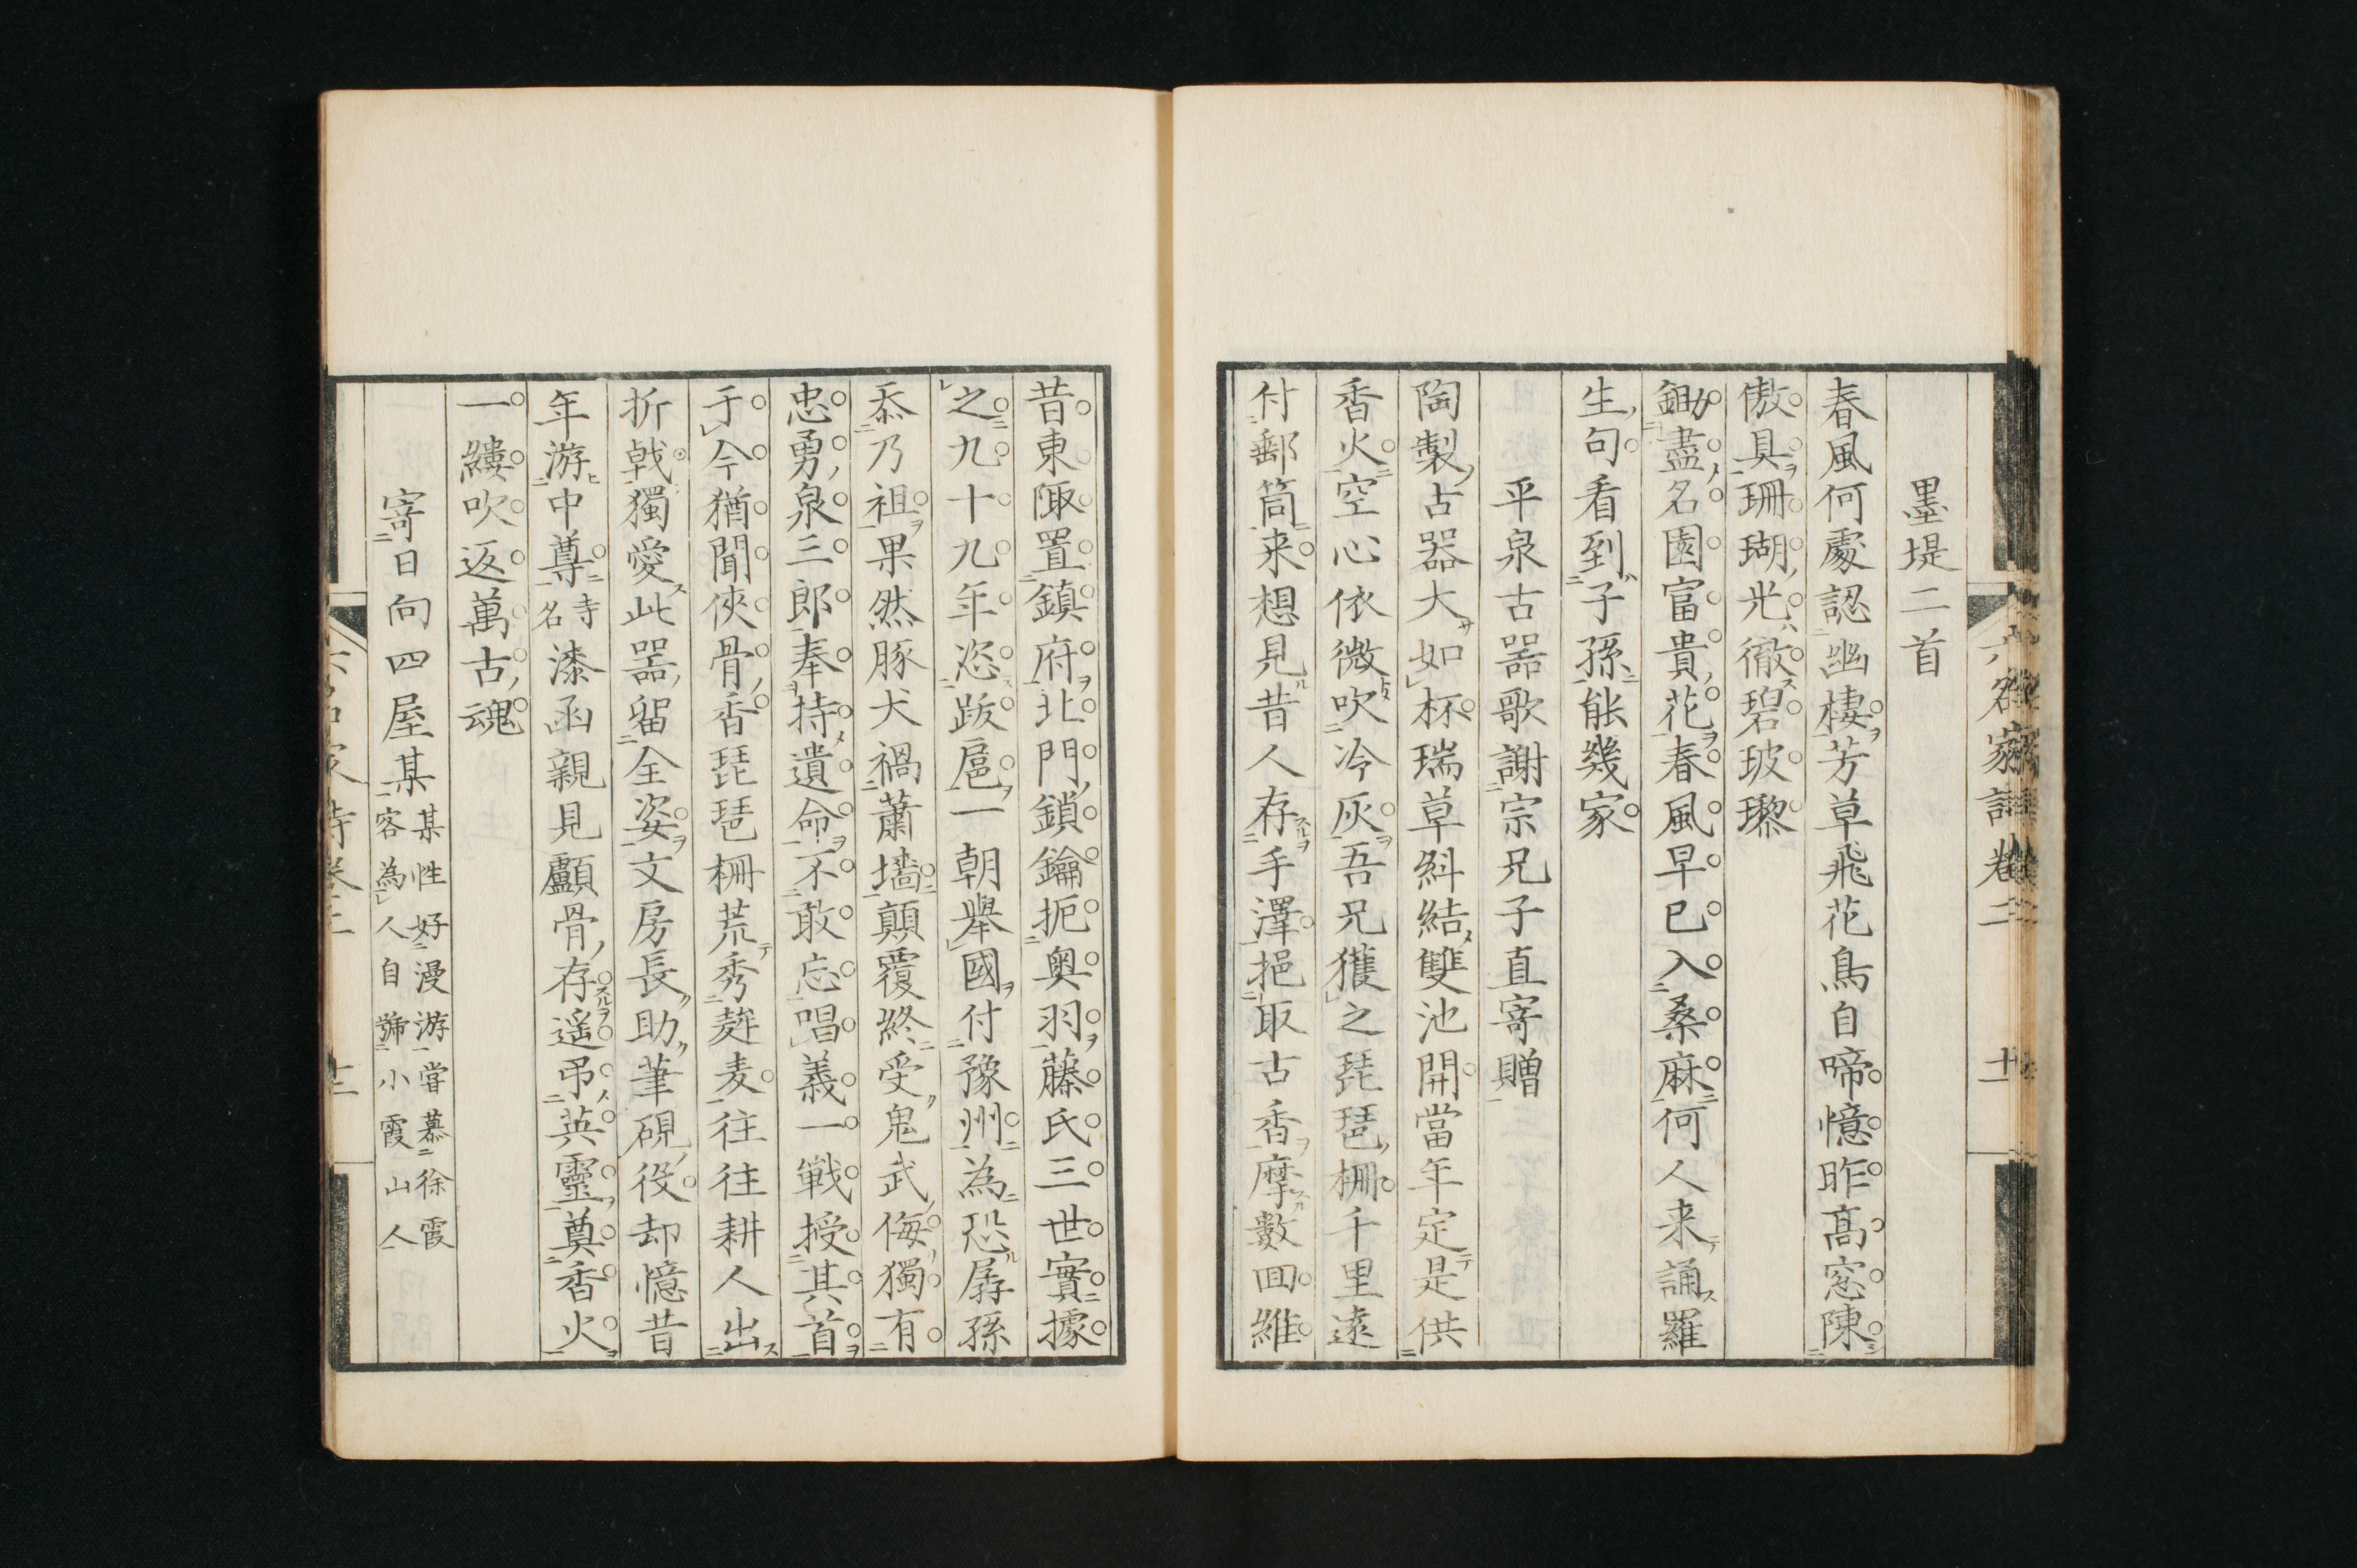 墨堤二首
春風何處認幽棲芳草飛花鳥自啼憶昨高窓陳
傲具珊瑚光徹碧玻瓈
鋤盡名園富貴花春風早已入桑麻何人来誦羅
生句看到子孫能幾家
平泉古器歌謝宗兄子直寄贈
陶製占器大如杯瑞草糾結雙池開當年定是供
香火空心依微吹冷灰吾兄獲之琵琶柵千里遠
付郵筒来想見昔人存手澤挹取古香摩數回維
昔東陬置鎮府北門鎖鑰扼奥羽藤氏三世實據
之九十九年恣跋扈一朝舉國付豫州為恐孱孫
忝乃祖果然豚犬禍蕭墻顛覆終受鬼武侮獨有
忠勇泉三郎奉持遺命不敢忘唱義一戦授其首
于今猶聞俠骨香琵琶柵荒秀薿麦往往耕人出
折戟獨愛此器留全姿文房長助筆硯役却憶昔
年游中尊寺名漆函親見顱骨存遥弔英靈奠香火
一縷吹返萬古魂
寄日向四屋某某性好漫游嘗慕徐霞客為人自號小霞山人
六名家詩卷二
十一